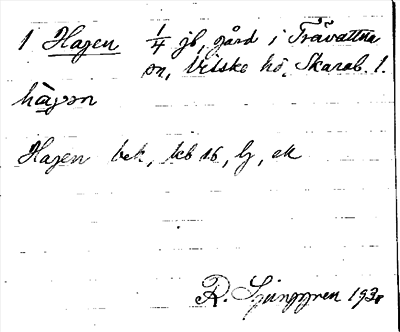 1 Hagen 1/4 jb, gård i Trävattna
sn, Vilske hd, Skarab. l.
hàgən
Hagen bek, kb 16, lj, ek
R. Ljunggren 1930